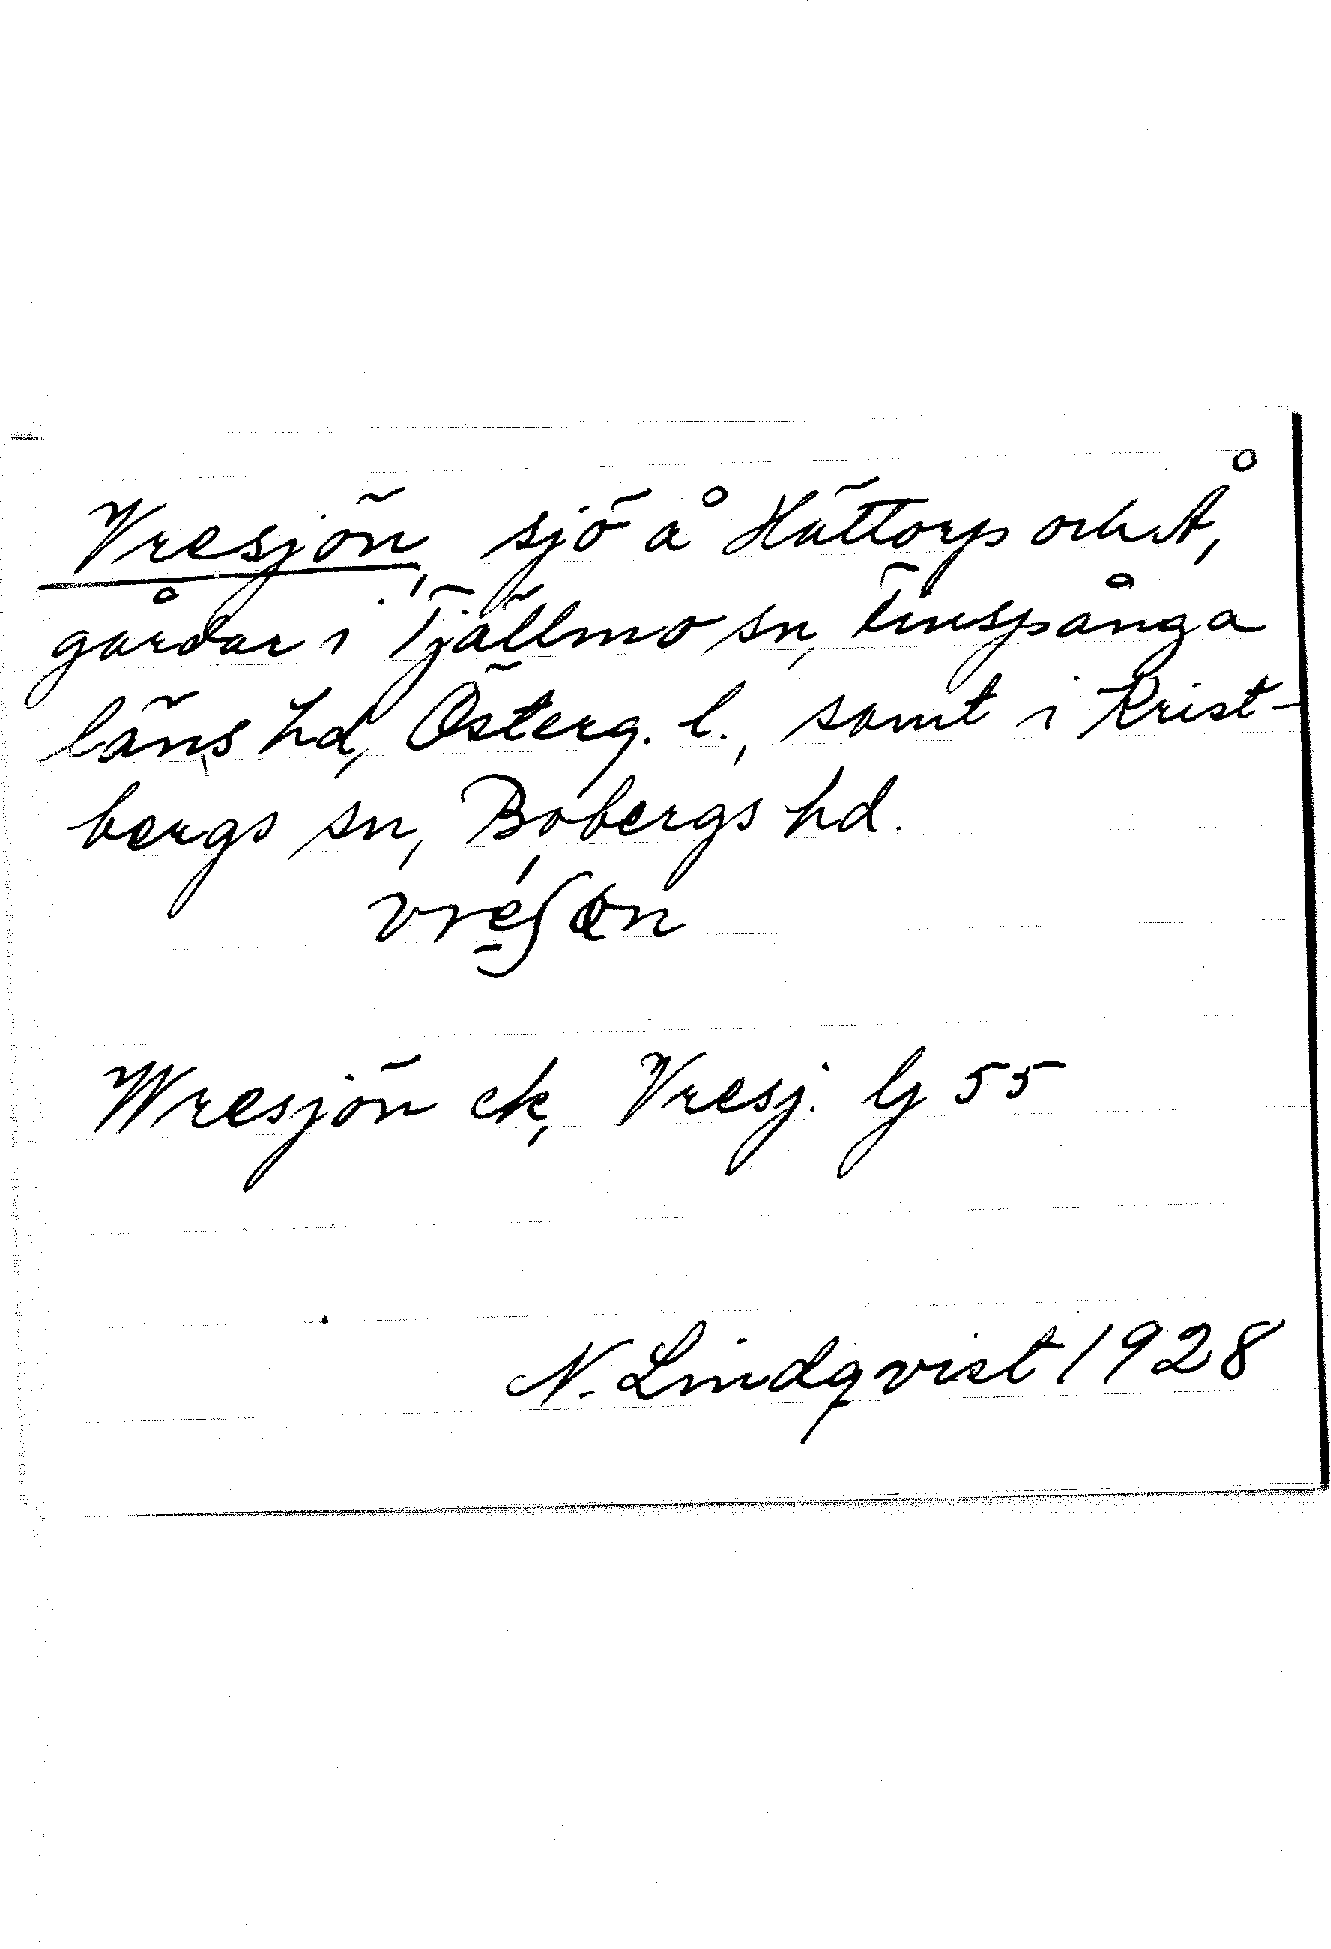 Vresjön, sjö å Hättorp och Å,
gårdar i Tjällmo sn, Finspånga
läns hd, Österg. l., samt i Krist-
bergs sn, Bobergs hd.
Wresjön ek, Vresj. Gj 55
N. Lindqvist 1928